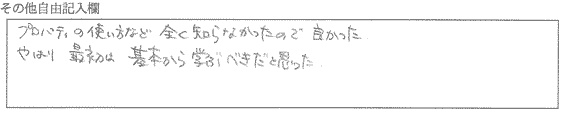 その他自由記入欄
プロパティの使い方など 全く知らなかったので 良かった
やはり 最初は 基本から学ぶべきだと思った